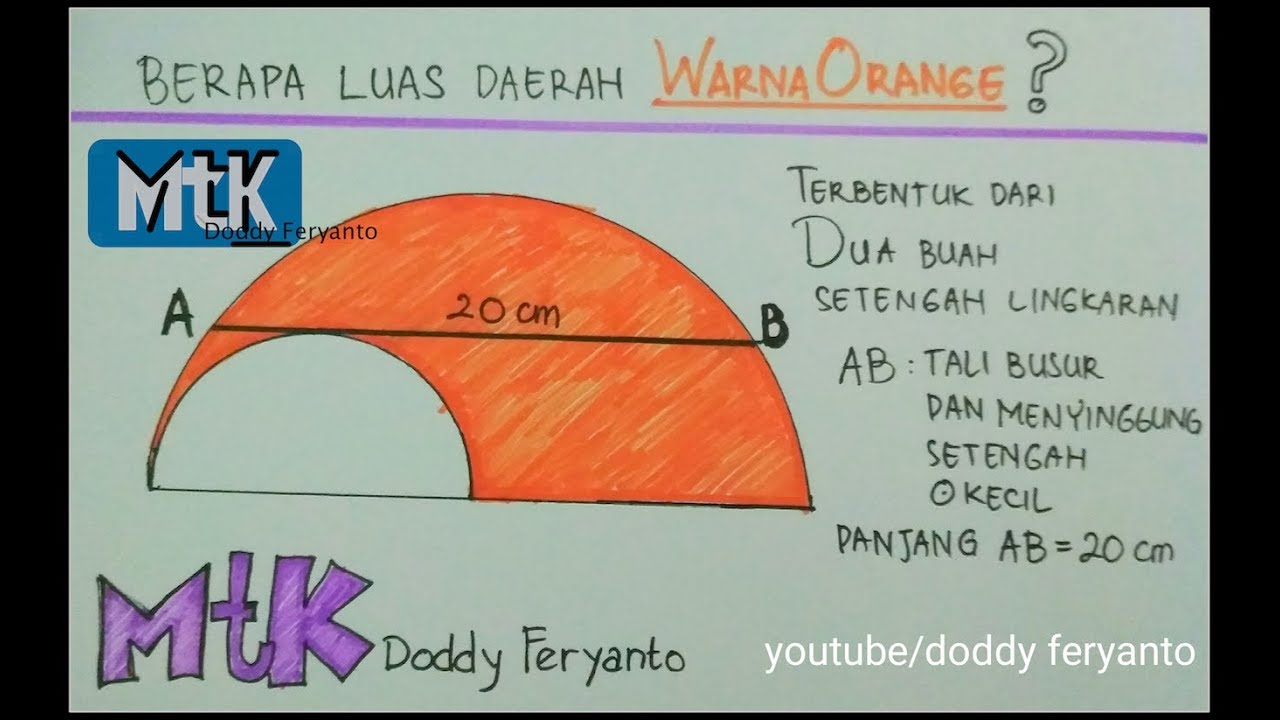 BERAPA LUAS DAERAH WARNA ORANGE?
MtK
Doddy Feryanto
TERBENTUK DARI
DUA BUAH
SETENGAH LINGKARAN
A
20 cm
B
AB : TALI BUSUR
DAN MENYINGGUNG
SETENGAH
⊙ KECIL
PANJANG AB = 20 cm
MtK Doddy Feryanto
youtube/doddy feryanto